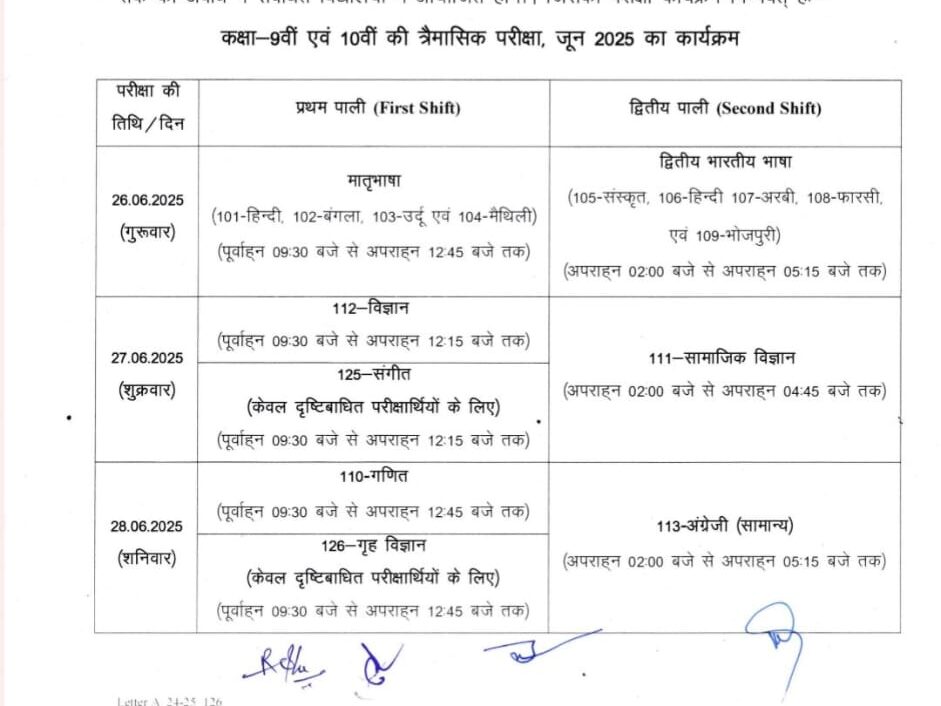 कक्षा–9वीं एवं 10वीं की त्रैमासिक परीक्षा, जून 2025 का कार्यक्रम
परीक्षा की
तिथि/दिन
प्रथम पाली (First Shift)
द्वितीय पाली (Second Shift)
26.06.2025
(गुरूवार)
मातृभाषा
(101-हिन्दी, 102-बंगला, 103-उर्दू एवं 104-मैथिली)
(पूर्वाह्न 09:30 बजे से अपराह्न 12:45 बजे तक)
द्वितीय भारतीय भाषा
(105-संस्कृत, 106-हिन्दी 107-अरबी, 108-फारसी,
एवं 109-भोजपुरी)
(अपराह्न 02:00 बजे से अपराह्न 05:15 बजे तक)
27.06.2025
(शुक्रवार)
112–विज्ञान
(पूर्वाह्न 09:30 बजे से अपराह्न 12:15 बजे तक)
125–संगीत
(केवल दृष्टिबाधित परीक्षार्थियों के लिए)
(पूर्वाह्न 09:30 बजे से अपराह्न 12:15 बजे तक)
111–सामाजिक विज्ञान
(अपराह्न 02:00 बजे से अपराह्न 04:45 बजे तक)
28.06.2025
(शनिवार)
110-गणित
(पूर्वाह्न 09:30 बजे से अपराह्न 12:45 बजे तक)
126–गृह विज्ञान
(केवल दृष्टिबाधित परीक्षार्थियों के लिए)
(पूर्वाह्न 09:30 बजे से अपराह्न 12:45 बजे तक)
113-अंग्रेजी (सामान्य)
(अपराह्न 02:00 बजे से अपराह्न 05:15 बजे तक)
Letter A 24-25 126